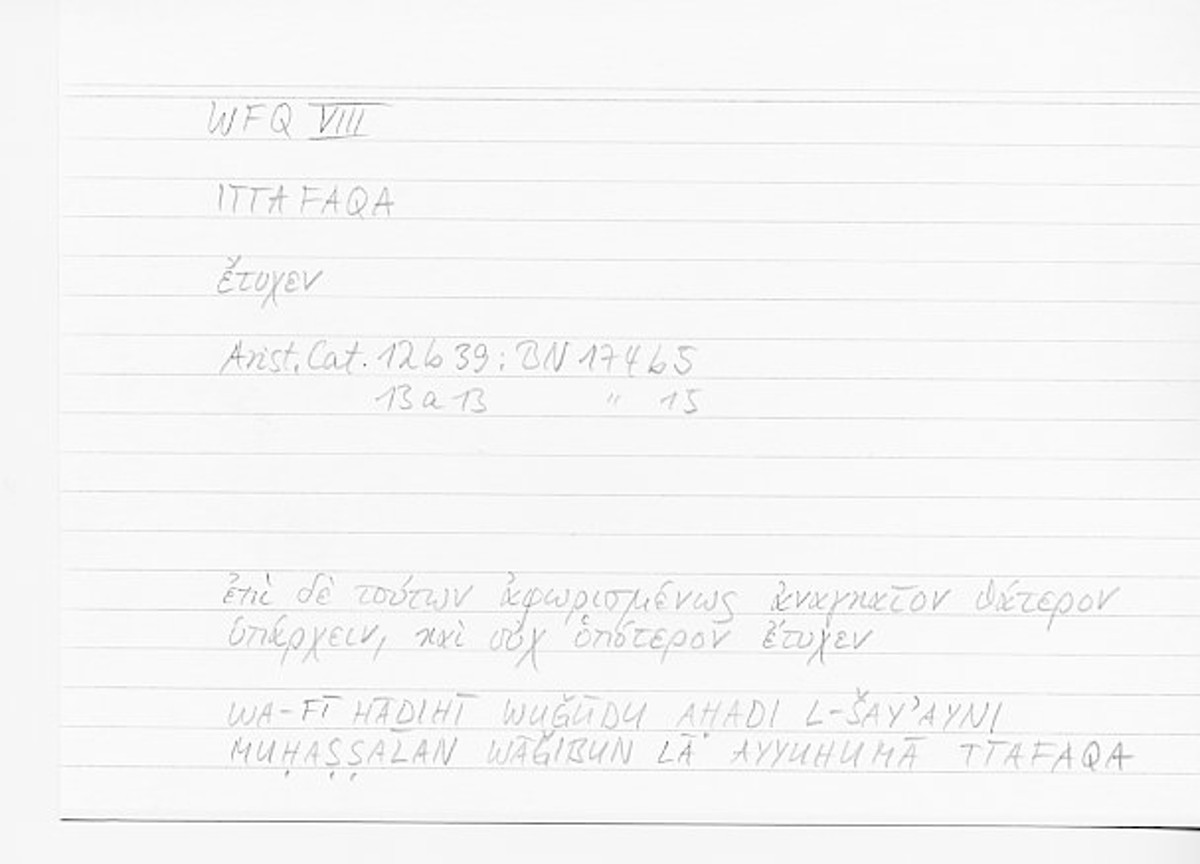 WFQ VIII
ITTAFAQA
ἔτυχεν
Arist. Cat. 12 b 39 : BN 174 b 5
13 a 13 " 15
ἐπὶ δὲ τούτων ἀφωρισμένως ἀναγκαῖον θάτερον
ὑπάρχειν, καὶ οὐχ ὁπότερον ἔτυχεν
WA-FĪ HĀḎIHĪ WUǦŪDU AḤADI L-ŠAYʾAYNI
MUḤAṢṢALAN WĀǦIBUN LĀ AYYUHUMĀ TTAFAQA